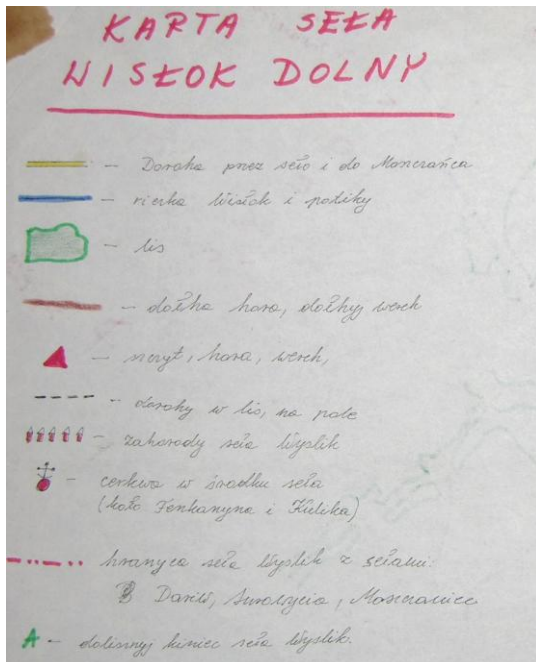 KARTA SEŁA
WISŁOK DOLNY
- Doroha prez seło i do Moszczańca
- riczka Wisłok i potiky
- lis
- dołha hora, dołhyj werch
- szczyt, hora, werch,
- dorohy w lis, na pole
- zahorody seła Wyslik
- cerkwa w sradku seła
(koło Fenkanyna i Kulika)
- hranyca seła Wyslik z sełami:
Dariw, Surowycia, Moszczaniec
A - dolisznyj kineć seła Wyslik.